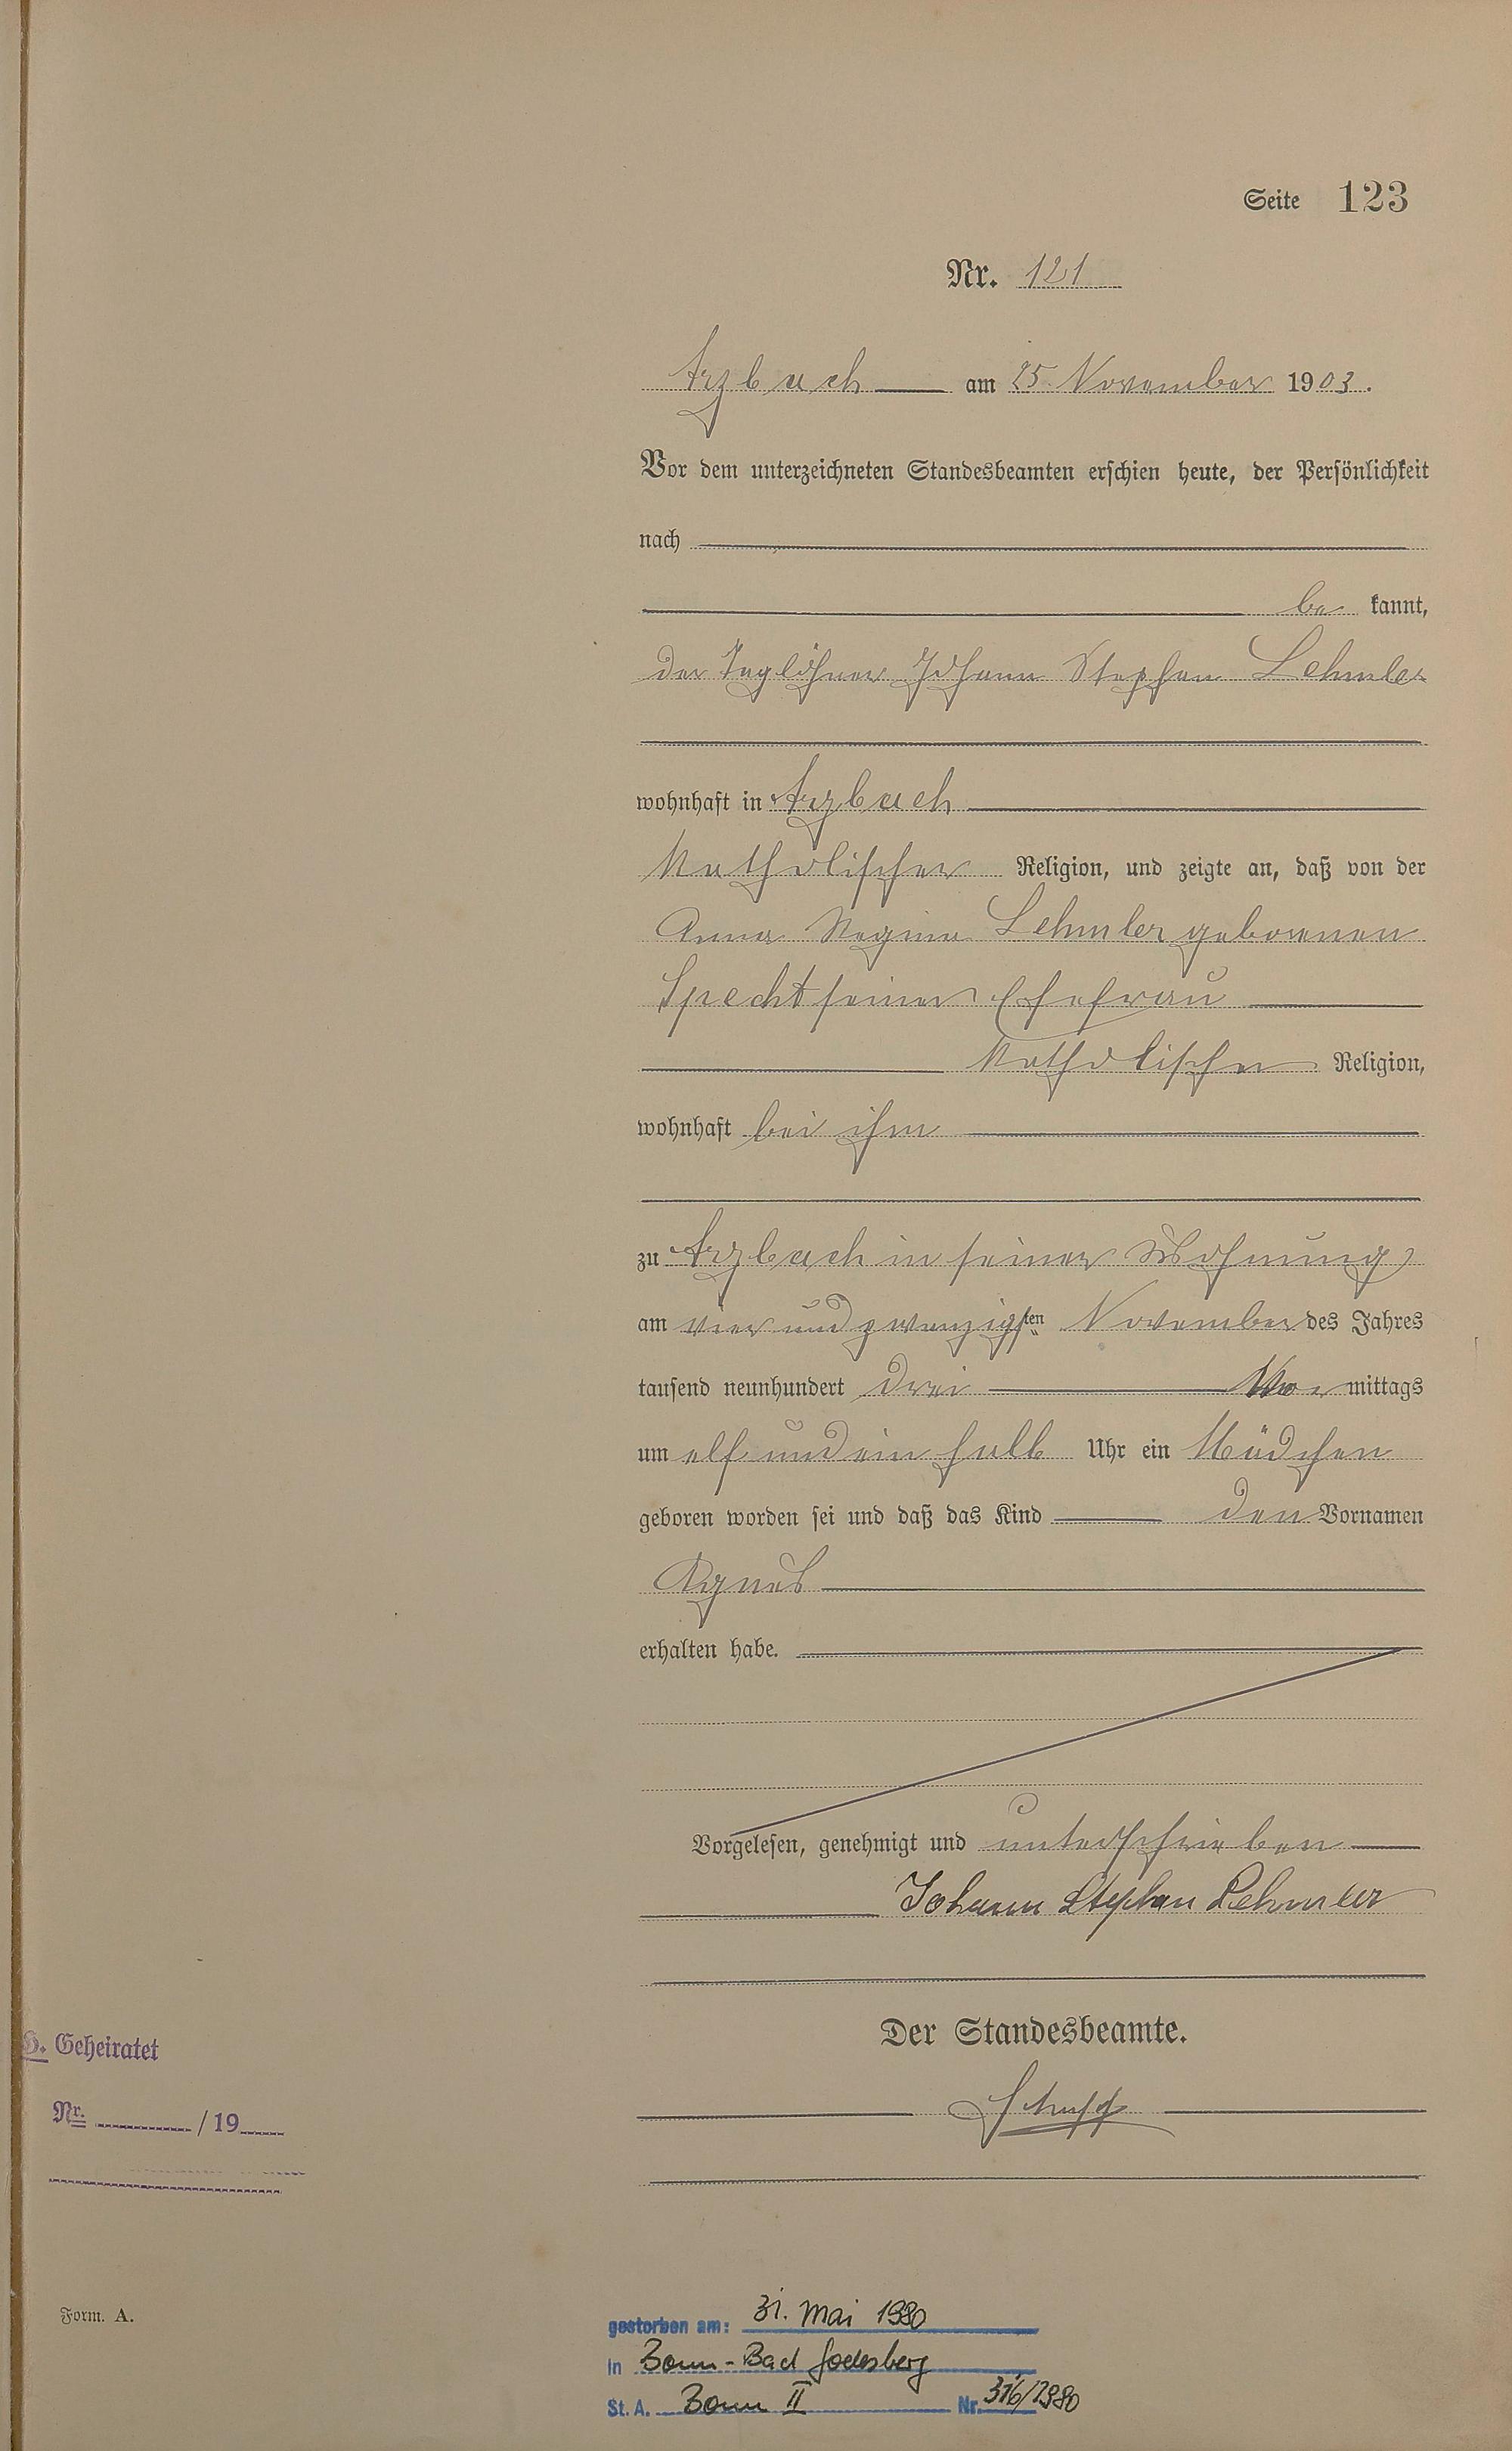 Seite 123
Nr. 121
Arzbach am 25. November 1903.
Vor dem unterzeichneten Standesbeamten erschien heute, der Persönlichkeit
nach
be kannt,
der Taglöhner Johann Stephan Lehmler
wohnhaft in Arzbach
katholischer Religion, und zeigte an, daß von der
Anna Regina Lehmler geborenen
Specht seiner Ehefrau
katholischer Religion,
wohnhaft bei ihm
zu Arzbach in seiner Wohnung
am vier und zwanzigsten November des Jahres
tausend neunhundert drei Vor mittags
um elf und ein halb Uhr ein Mädchen
geboren worden sei und daß das Kind den Vornamen
Agnes
erhalten habe.
Vorgelesen, genehmigt und unterschrieben
Johann Stephan Lehmler
Der Standesbeamte.
H. Geheiratet
Nr. /19
Form. A.
gestorben am: 31. Mai 1980
in Bonn-Bad Godesberg
St. A. Bonn II Nr. 316/1980